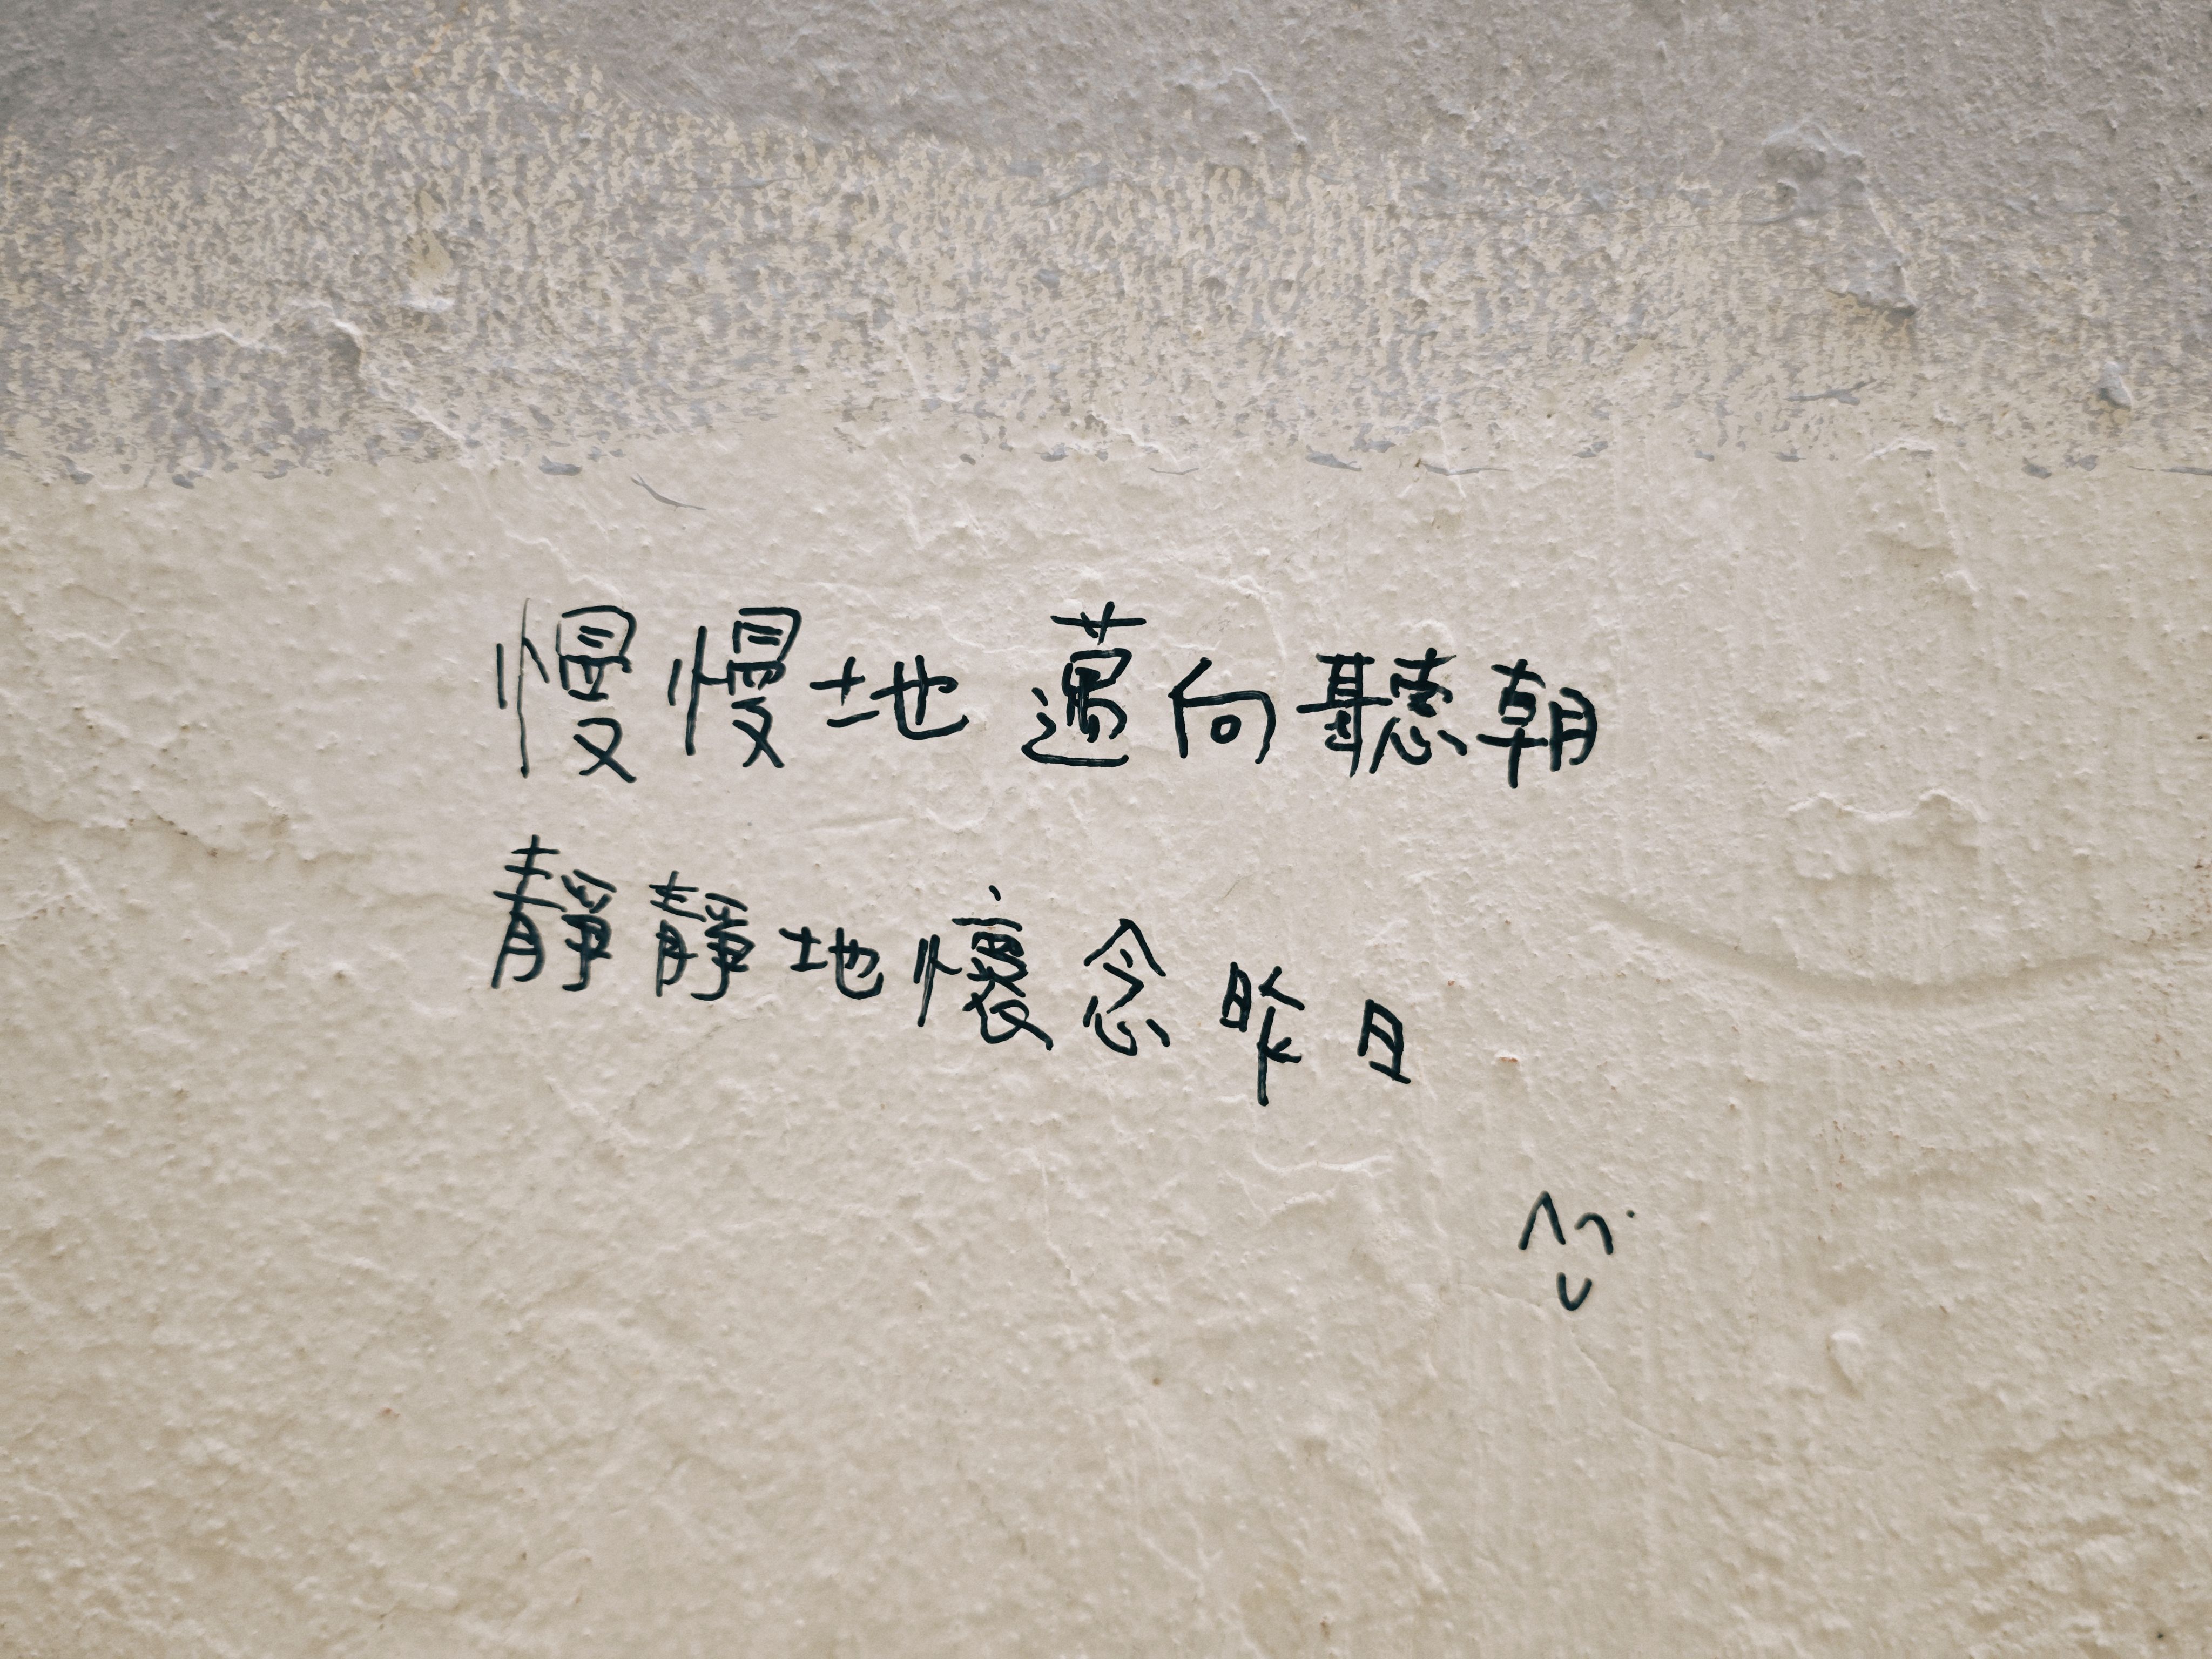 慢慢地邁向聽朝
靜靜地懷念昨日